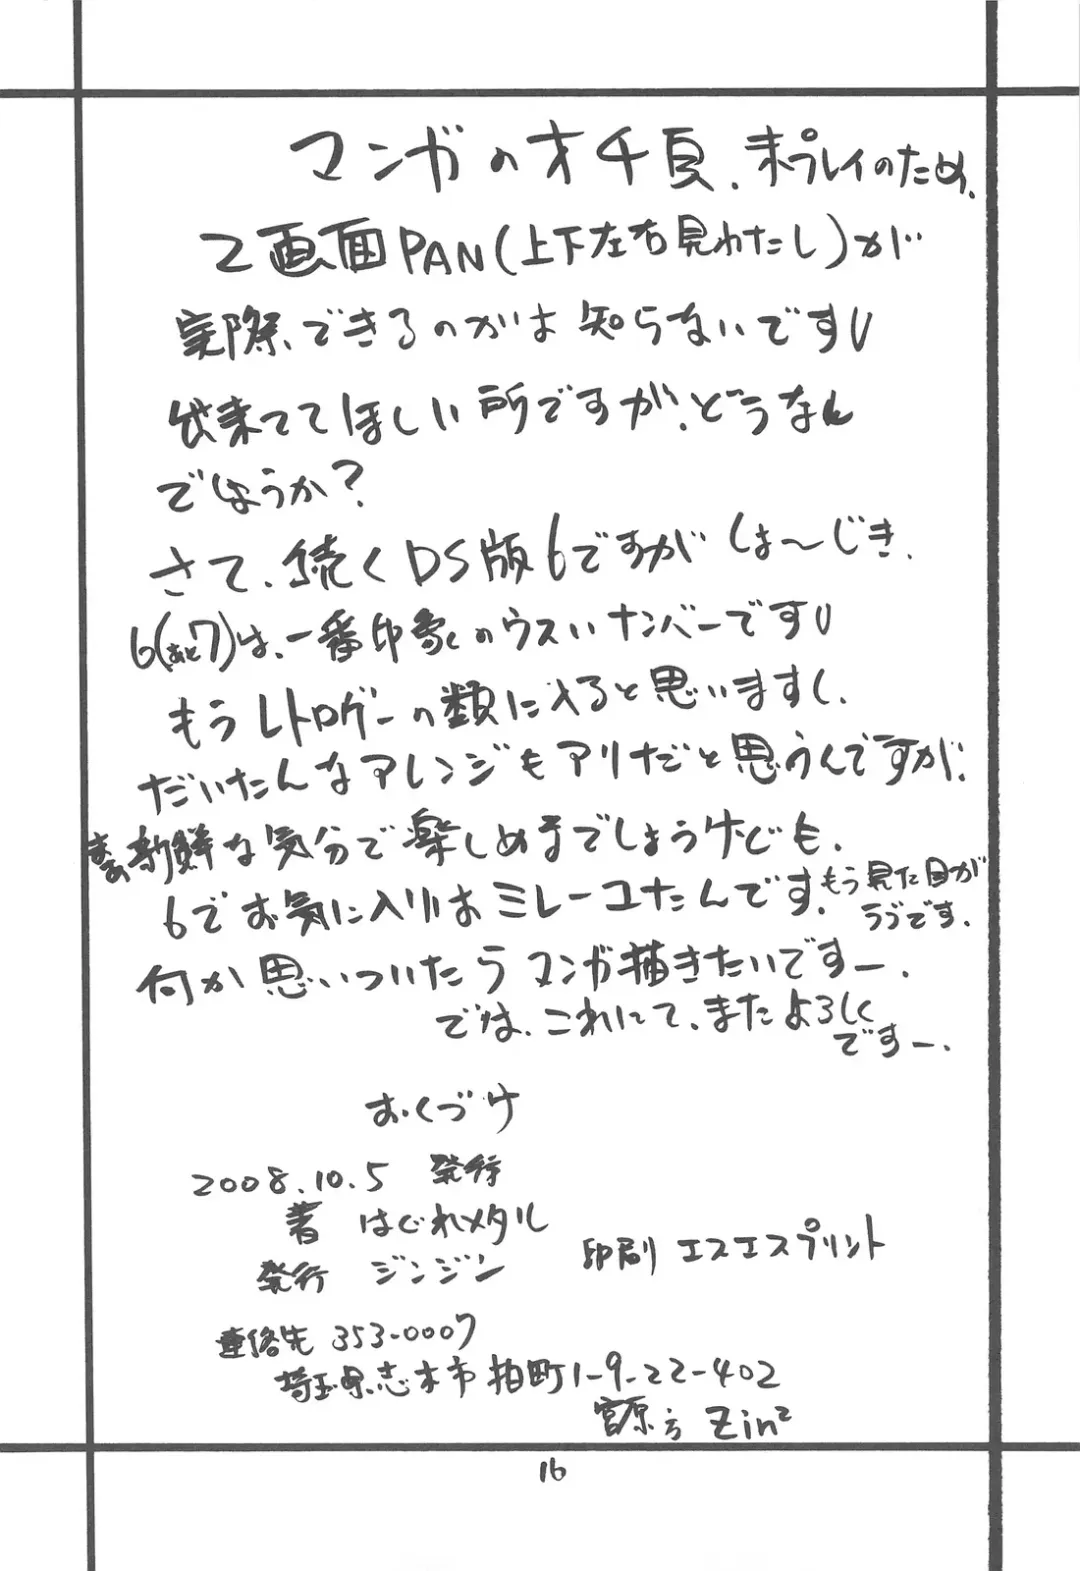 マンガのオチ頁、未プレイのため、
2画面PAN(上下左右見わたし)が
実際できるのかは知らないですU
出来ててほしい所ですが、どうなん
でしょうか?
さて、続くDS版6ですがしょ〜じき、
6(あと7)は、一番印象のウスいナンバーですU
もうレトロゲーの類に入ると思いますし、
だいたんなアレンジもアリだと思うんですが、
まあ新鮮な気分で楽しめまでしょうけども、
6でお気に入りはミレーユたんです。もう見た目が
ラブです。
何か思いついたらマンガ描きたいですー。
では、これにて、またよろしく
ですー。
おくづけ
2008.10.5 発行
著 はぐれメタル
発行 ジンジン
印刷 エスエスプリント
連絡先 353-0007
埼玉県志木市柏町1-9-22-402
宮原方 Zin²
16